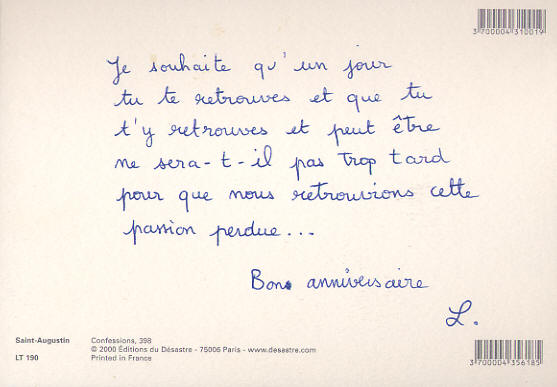 3 700004 310019
Je souhaite qu'un jour
tu te retrouves et que tu
t'y retrouves et peut être
ne sera-t-il pas trop tard
pour que nous retrouvions cette
passion perdue...
Bon anniversaire
L.
Saint-Augustin
LT 190
Confessions, 398
© 2000 Éditions du Désastre - 75006 Paris - www.desastre.com
Printed in France
3 700004 356185